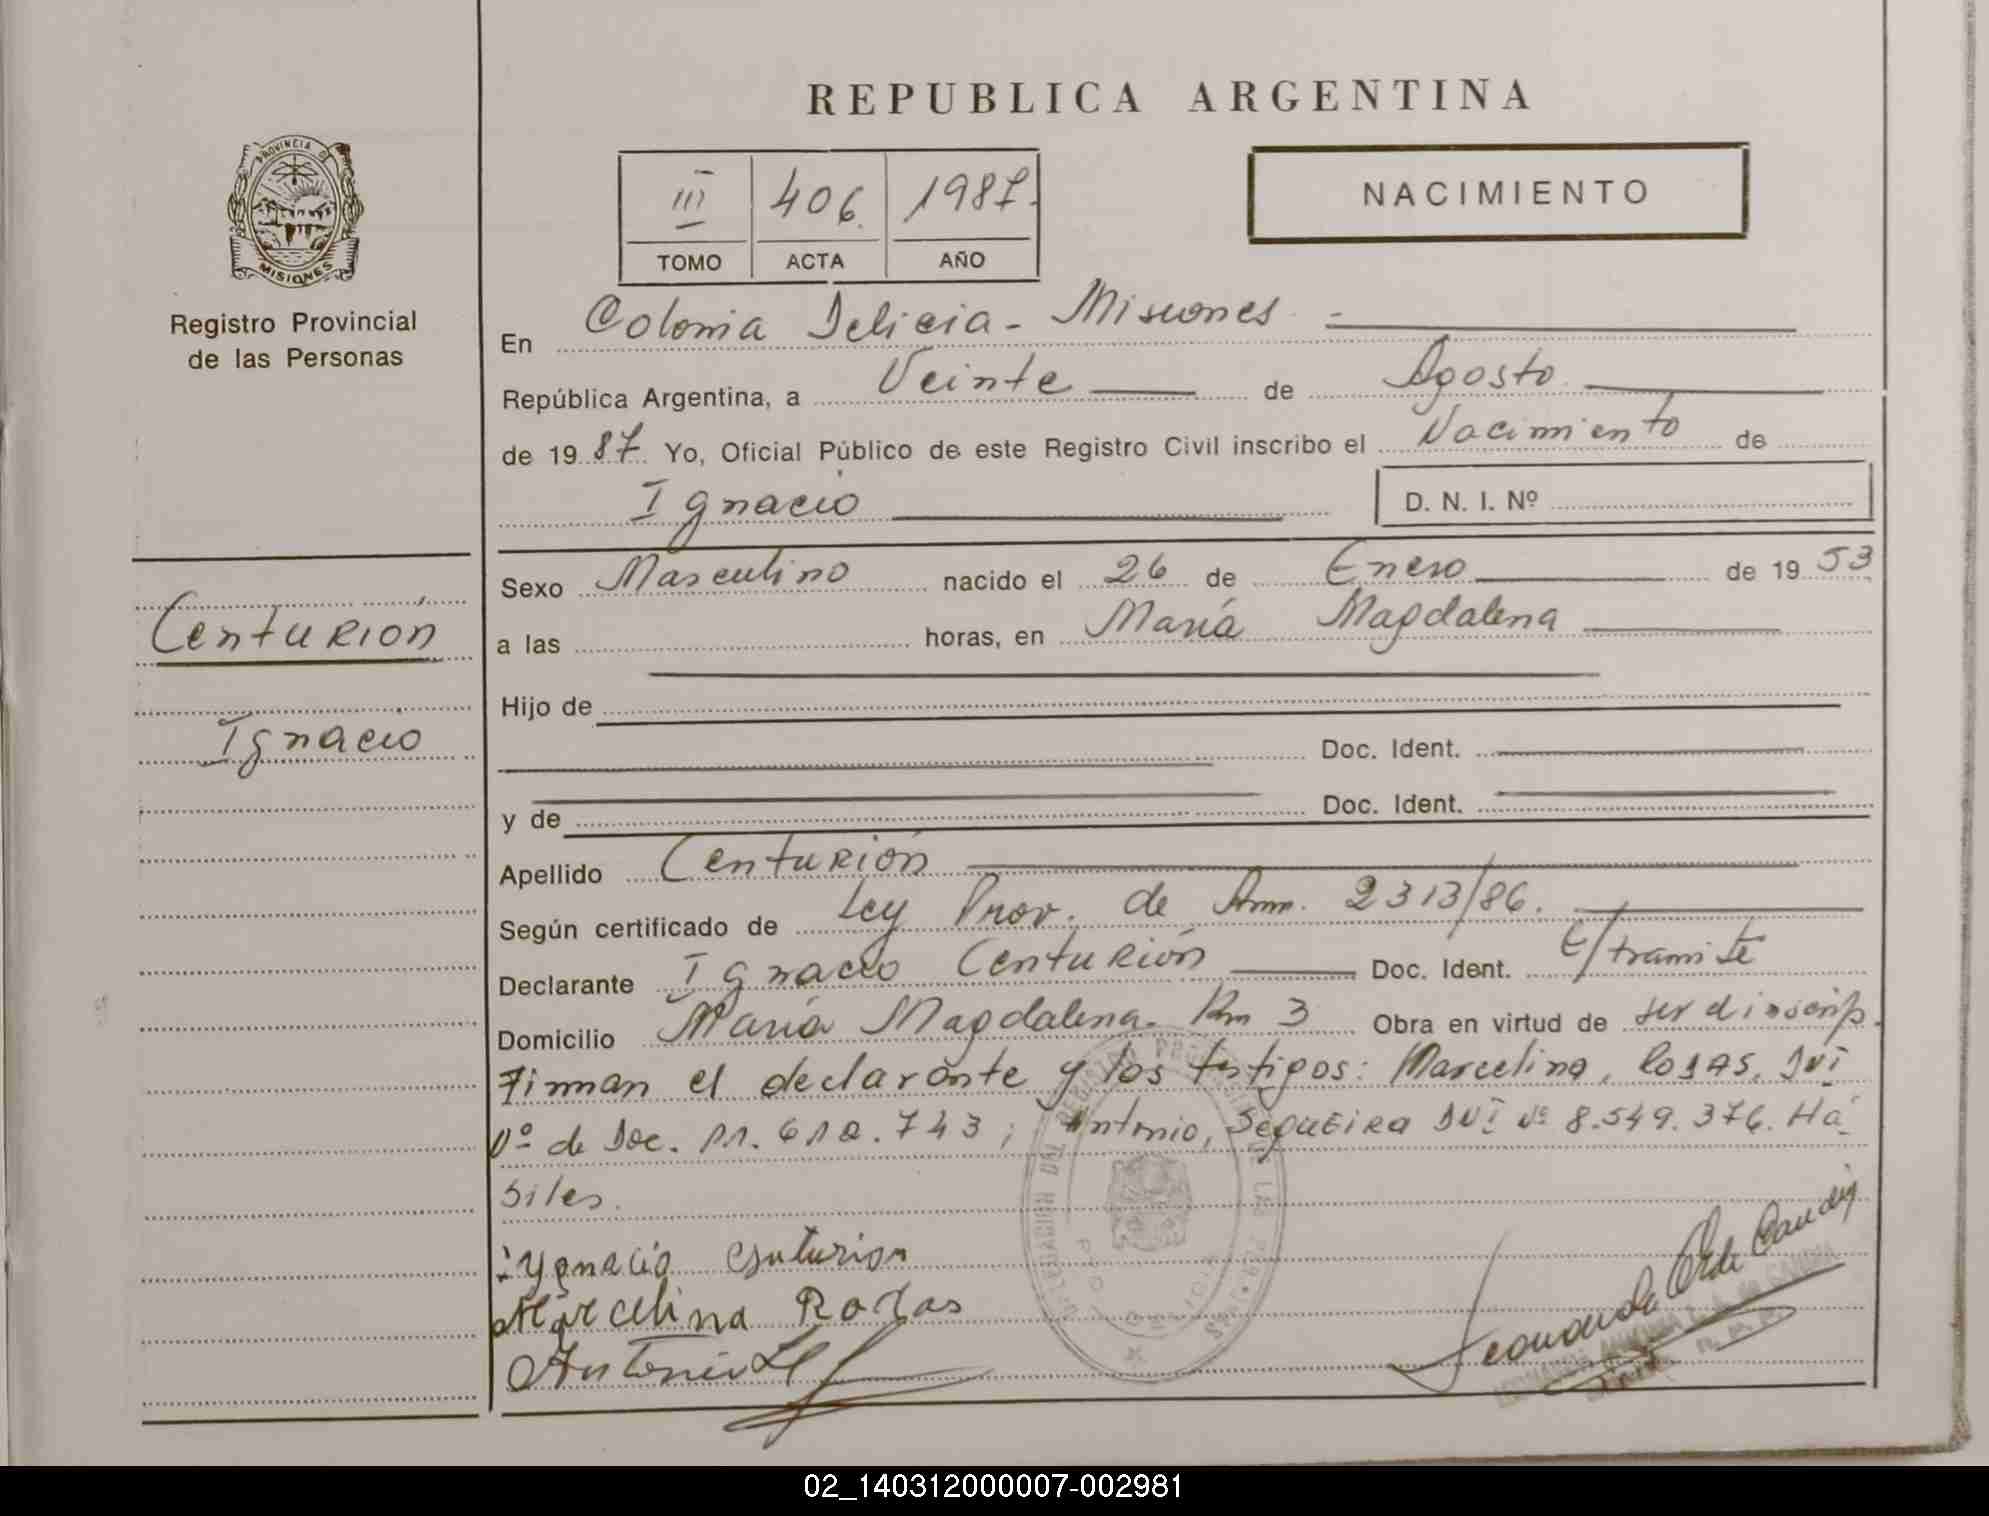 REPUBLICA ARGENTINA
PROVINCIA D
MISIONES
Registro Provincial
de las Personas
III 406. 1987.
TOMO ACTA AÑO
NACIMIENTO
En Colonia Delicia - Misiones
República Argentina, a Veinte de Agosto
de 19 87 Yo, Oficial Público de este Registro Civil inscribo el Nacimiento de
Ignacio D. N. I. Nº
Sexo Masculino nacido el 26 de Enero de 19 53
a las horas, en María Magdalena
Hijo de
Doc. Ident.
y de Doc. Ident.
Apellido Centurión
Según certificado de Ley Prov. de Amn. 2313/86.
Declarante Ignacio Centurión Doc. Ident. E/tramite
Domicilio María Magdalena. Km 3 Obra en virtud de ser d inscrip.
Firman el declarante y los testigos: Marcelina, Rosas, DNI
Nº de Doc. 11.612.743; Antonio, Segueira DNI Nº 8.549.376. Há
biles.
Centurión
Ignacio
Ygnacio Centurion
Marcelina Rosas
Antonio
02_140312000007-002981